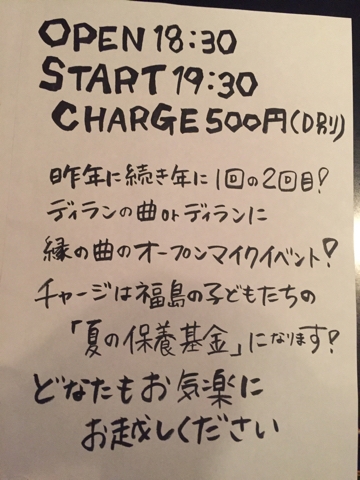 OPEN 18:30
START 19:30
CHARGE 500円(D別)
昨年に続き年に1回の2回目!
ディランの曲orディランに
縁の曲のオープンマイクイベント!
チャージは福島の子どもたちの
「夏の保養基金」になります!
どなたもお気楽に
お越しください